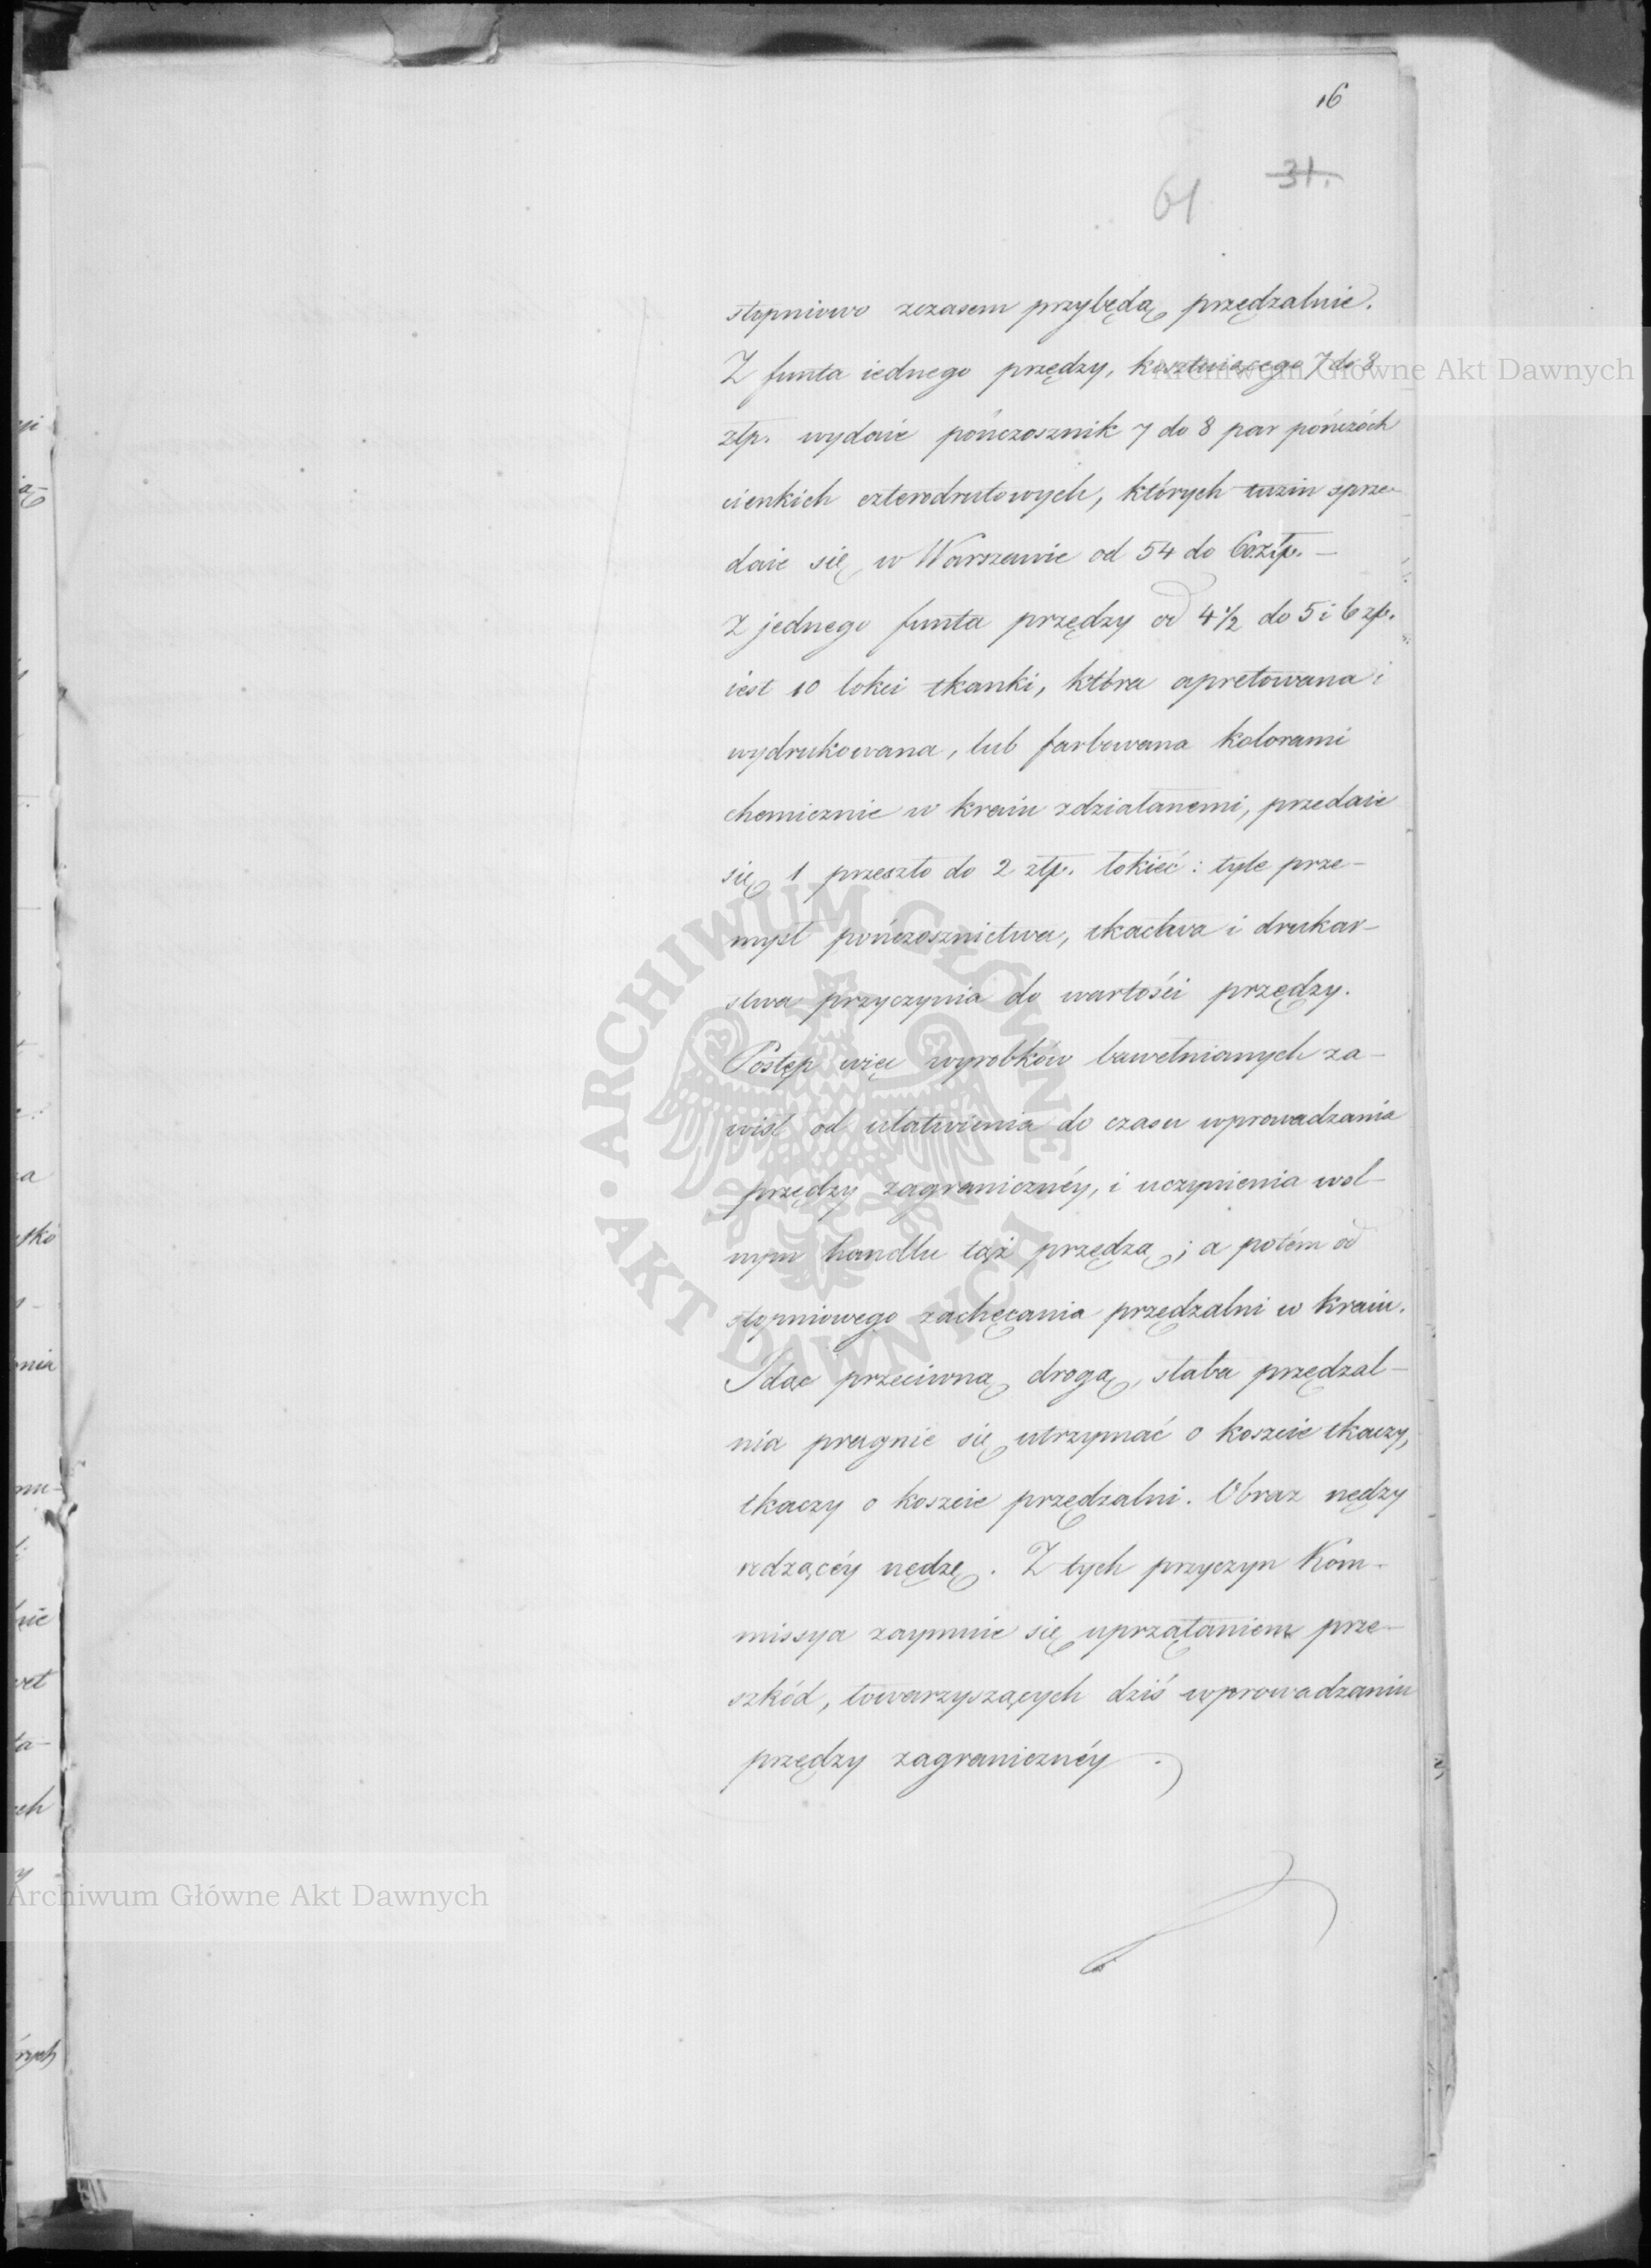 16
31.
61
stopniowo zczasem przybędą przędzalnie.
Z funta iednego przędzy, kosztuiącego 7 do 8
złp. wydaie pończosznik 7 do 8 par pończóch
cienkich czterodrutowych, których tuzin sprze-
daie się w Warszawie od 54 do 60 złp. —
Z jednego funta przędzy od 4 1/2 do 5 i 6 zp.
iest 10 łokci tkanki, która apretowana i
wydrukowana, lub farbowana kolorami
chemicznie w kraiu zdziałanemi, przedaie
się 1 przeszło do 2 złp. łokieć: tyle prze-
mysł pończosznictwa, tkactwa i drukar-
stwa przyczynia do wartości przędzy.
Postęp więc wyrobków bawełnianych za-
wisł od ułatwienia do czasu wprowadzania
przędzy zagranicznéy, i uczynienia wol-
nym handlu tąż przędzą; a potém od
stopniowego zachęcania przędzalni w kraiu.
Idąc przeciwną drogą, słaba przędzal-
nia pragnie się utrzymać o koszcie tkaczy,
tkaczy o koszcie przędzalni. Obraz nędzy
rodzącéy nędzę. Z tych przyczyn Kom-
missya zaymnie się uprzątaniem prze-
szkód, towarzyszących dziś wprowadzaniu
przędzy zagranicznéy.
Archiwum Główne Akt Dawnych
ARCHIWUM GŁÓWNE AKT DAWNYCH
Archiwum Główne Akt Dawnych